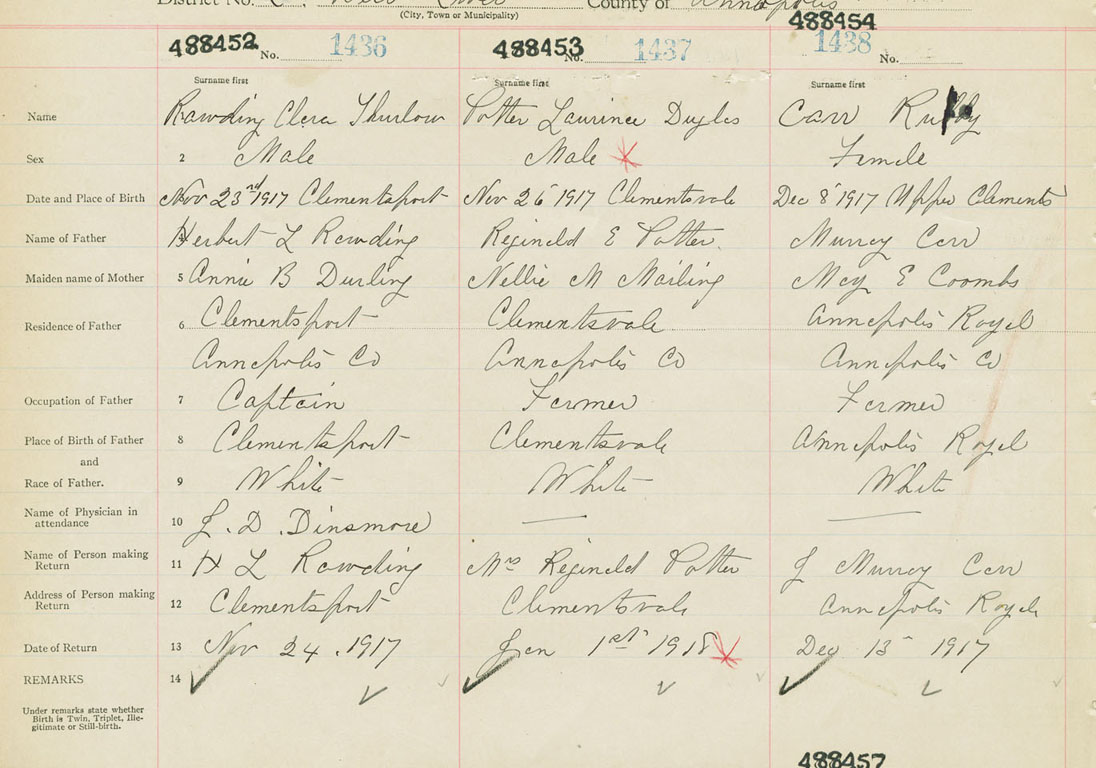 District No. County of Annapolis
(City, Town or Municipality)
488452 No. 1436 488453 No. 1437 488454 1438 No.
Surname first Surname first Surname first
Name Rawding Clera Thurlow Potter Laurince Duglas Carr Ruby
Sex 2 Male Male Female
Date and Place of Birth Nov 23rd 1917 Clementsport Nov 26 1917 Clementsvale Dec 8 1917 Upper Clements
Name of Father Herbert L Rawding Reginald E Potter. Murray Carr
Maiden name of Mother 5 Annie B Durling Nellie M Mailing May E Coombs
Residence of Father 6 Clementsport Clementsvale Annapolis Royal
Annapolis Co Annapolis Co Annapolis Co
Occupation of Father 7 Captain Farmer Farmer
Place of Birth of Father 8 Clementsport Clementsvale Annapolis Royal
and
Race of Father. 9 White White White
Name of Physician in
attendance 10 L. D. Dinsmore
Name of Person making
Return 11 H L Rawding Mrs Reginald Potter J Murray Carr
Address of Person making
Return 12 Clementsport Clementsvale Annapolis Royal
Date of Return 13 Nov 24. 1917 Jan 1st 1918 Dec 13 1917
REMARKS 14
Under remarks state whether
Birth is Twin, Triplet, Ille-
gitimate or Still-birth.
488457